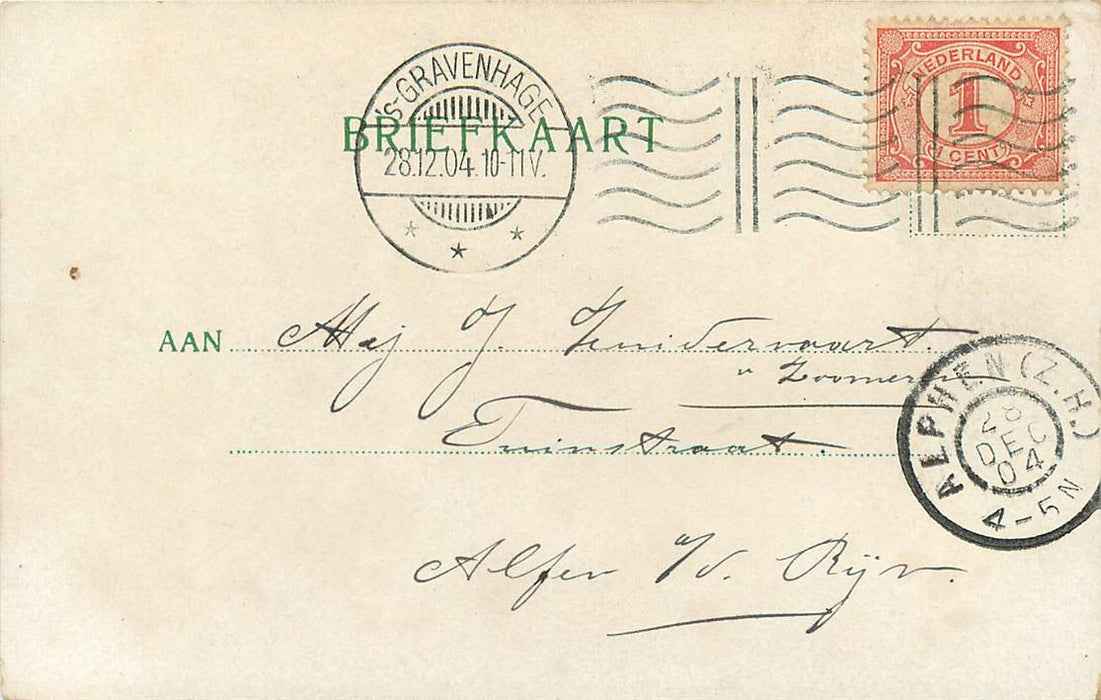 's-GRAVENHAGE
28.12.04. 10-11V.
BRIEFKAART
NEDERLAND
1
(1 CENT)
AAN Mej J. Zuidervaart.
Tuinstraat.
Alfen a/d. Rijn.
ALPHEN (Z.H.)
28
DEC
04
4-5N